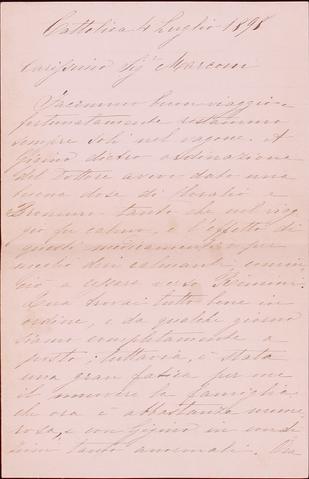 Cattolica 4 Luglio 1898
Carissimo Sigr Marconi
Facemmo buon viaggio e
fortunatamente restammo
sempre soli nel vagone. A
Gigino dietro ordinazione
del Dottore avevo dato una
buona dose di Cloralio e
Bromuro tanto che nel viag
gio fu calmo, e l'effetto di
questi medicamenti o per
meglio dire calmanti comin
ciò a cessare verso Rimini.
Qua trovai tutto bene in
ordine, e da qualche giorno
siamo completamente a
posto: tuttavia, è stata
una gran fatica per me
il muovere la famiglia
che ora è abbastanza nume
rosa, e con Gigino in condi
zioni tanto anormali. Ora